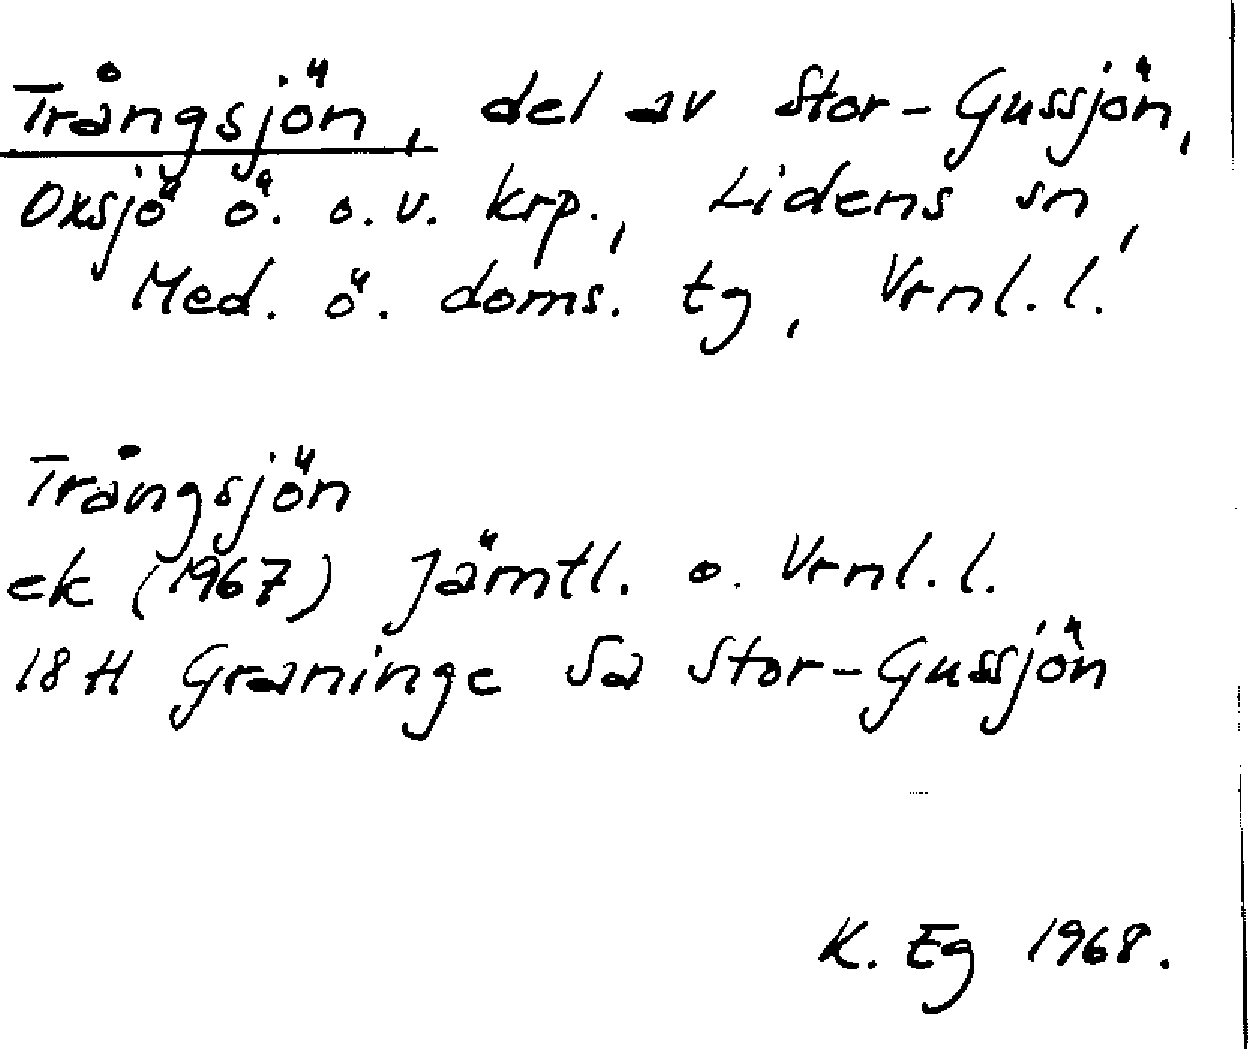 Trångsjön, del av Stor-Gussjön,
Oxsjö ö. o. v. krp., Lidens sn,
Med. ö. doms. tg, Vrnl. l.
Trångsjön
ek (1967) Jämtl. o. Vrnl. l.
18 H Graninge Sa Stor-Gussjön
K. Eg 1968.